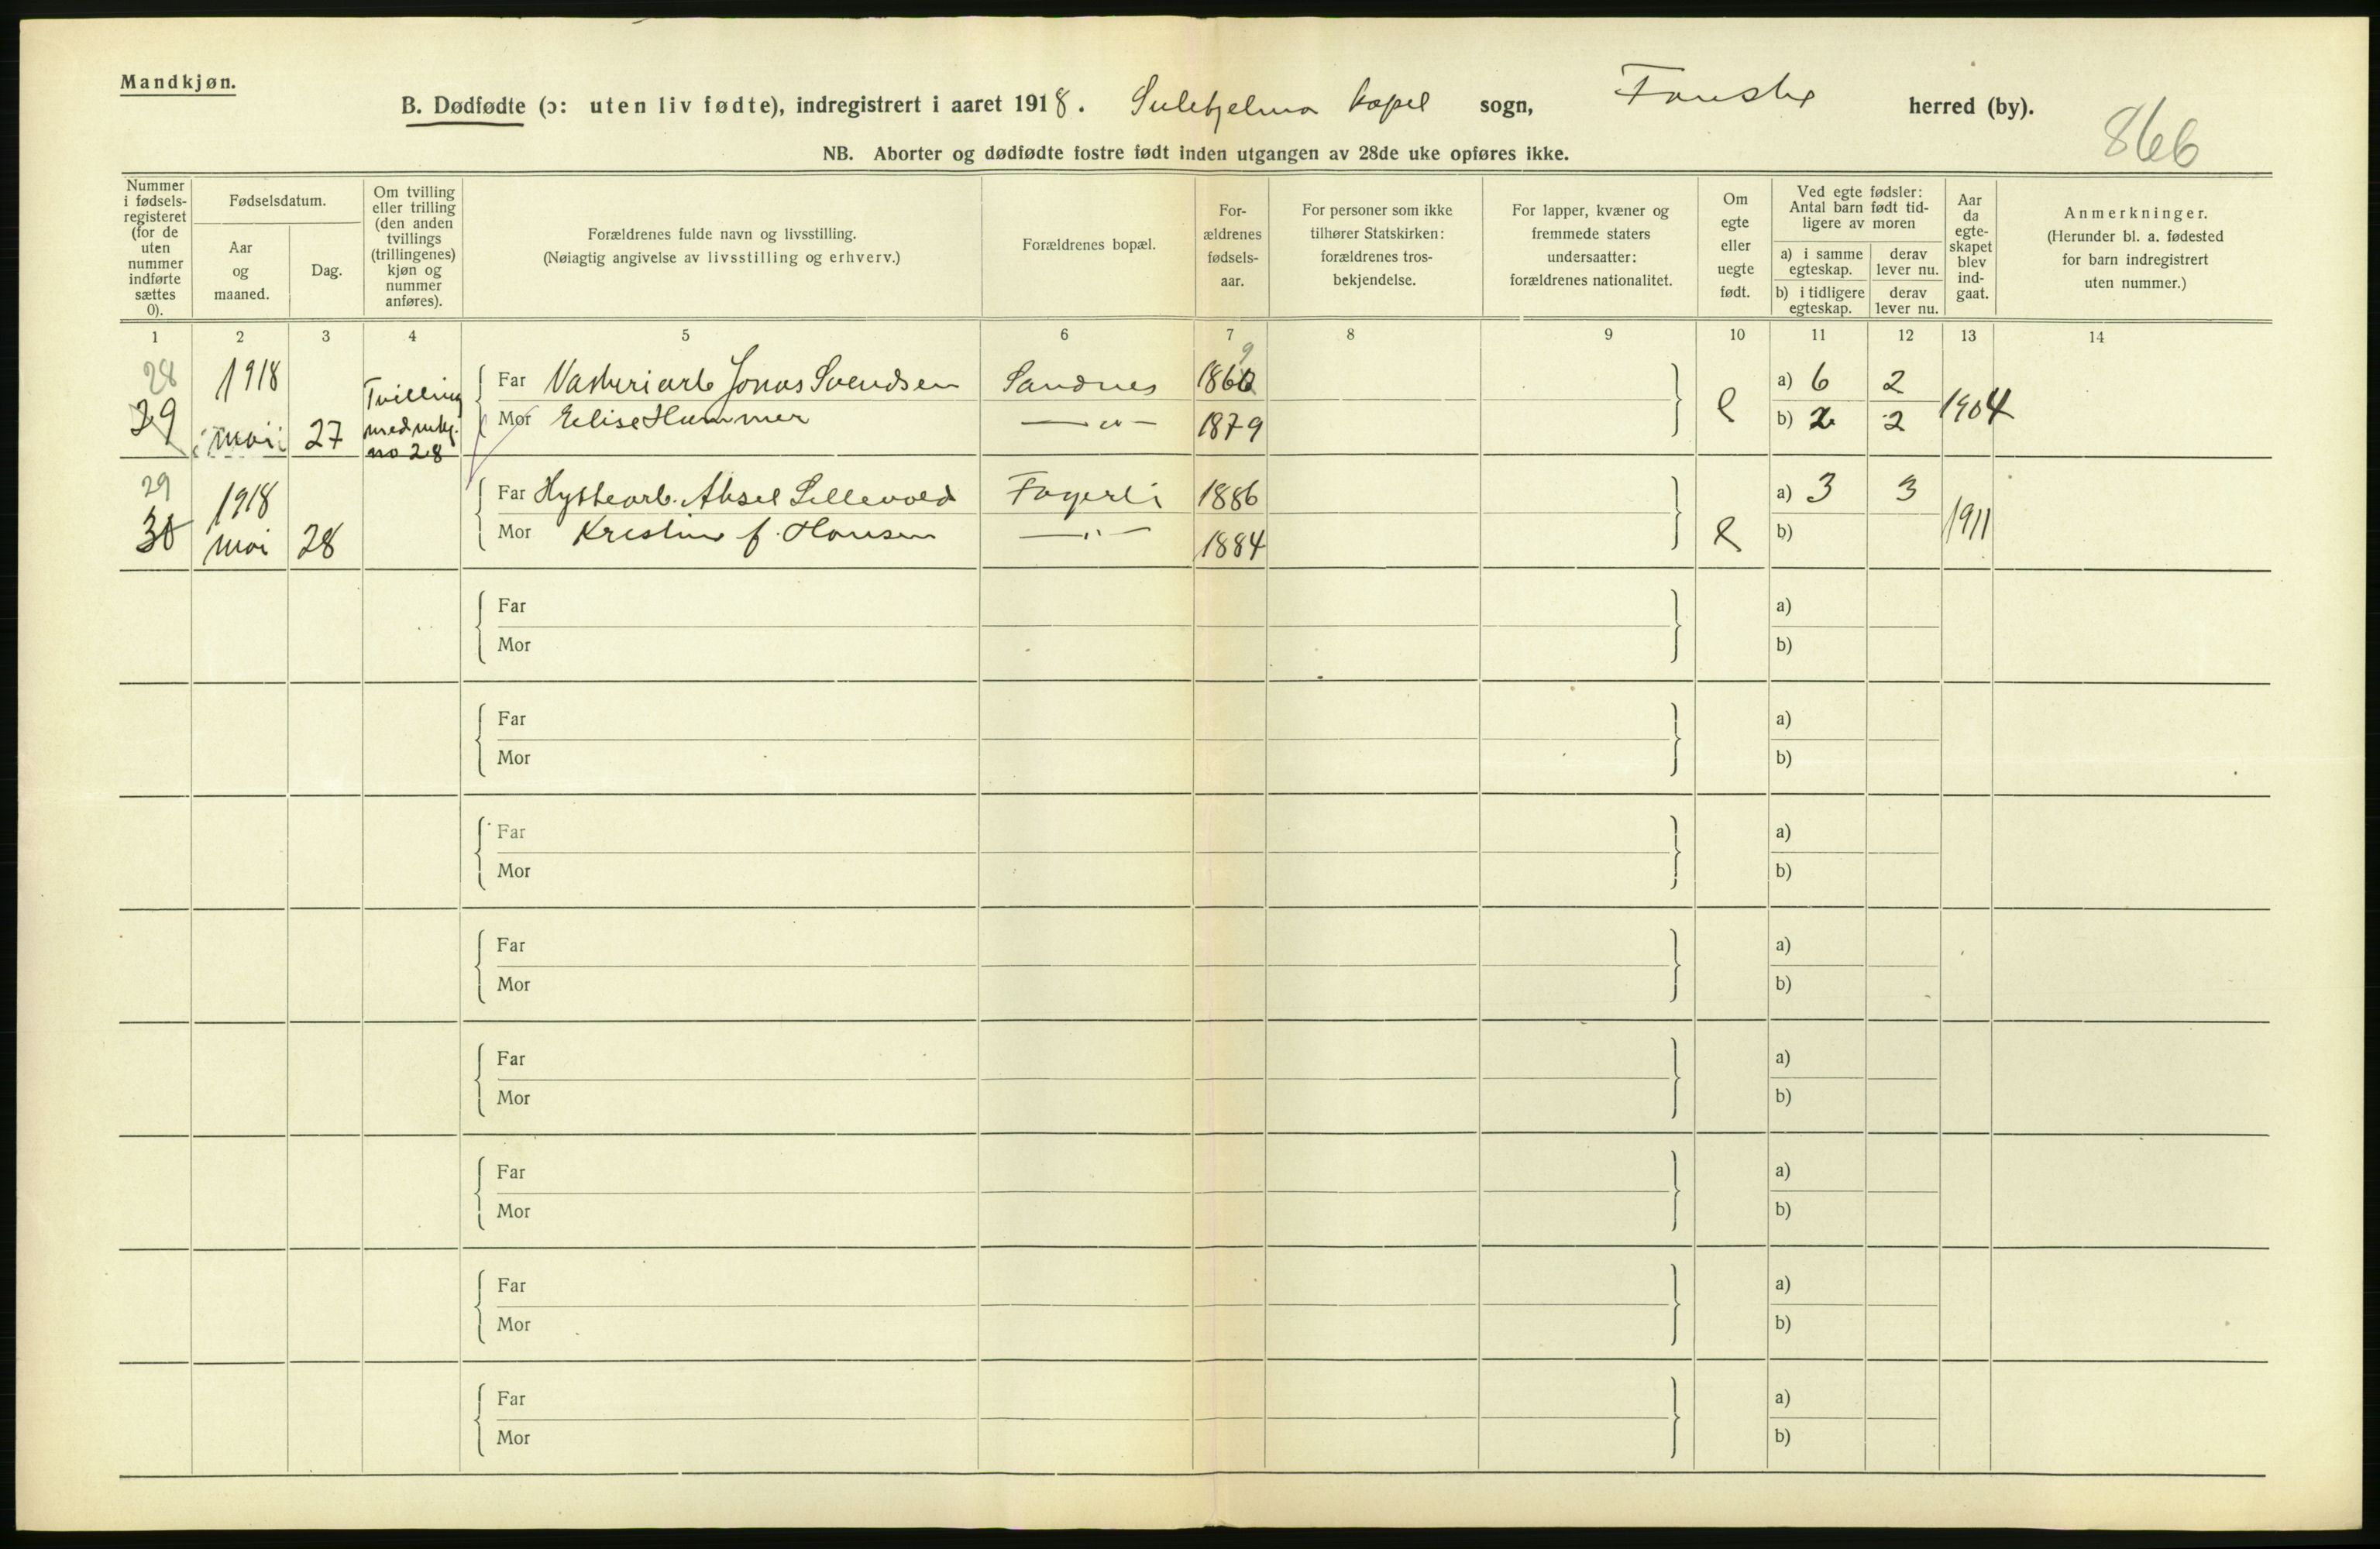 Mandkjøn.
B. Dødfødte (ɔ: uten liv fødte), indregistrert i aaret 1918. Sulitjelma kapel sogn, Fauske herred (by).
866
NB. Aborter og dødfødte fostre født inden utgangen av 28de uke opføres ikke.
Nummer i fødsels-registeret (for de uten nummer indførte sættes 0).
Fødselsdatum.
Aar og maaned.
Dag.
Om tvilling eller trilling (den anden tvillings (trillingenes) kjøn og nummer anføres).
Forældrenes fulde navn og livsstilling.
(Nøiagtig angivelse av livsstilling og erhverv.)
Forældrenes bopæl.
For-ældrenes fødsels-aar.
For personer som ikke tilhører Statskirken: forældrenes tros-bekjendelse.
For lapper, kvæner og fremmede staters undersaatter: forældrenes nationalitet.
Om egte eller uegte født.
Ved egte fødsler: Antal barn født tid-ligere av moren
a) i samme egteskap.
derav lever nu.
b) i tidligere egteskap.
derav lever nu.
Aar da egte-skapet blev ind-gaat.
Anmerkninger.
(Herunder bl. a. fødested for barn indregistrert uten nummer.)
1 2 3 4 5 6 7 8 9 10 11 12 13 14
28
29
1918
mai 27
Tvilling
med mkj.
no 28
Far Vaskeriarb Jonas Svendsen Sandnes 1860 9
Mor Elise Hammer — " — 1879
e
a) 6 2
b) 2 2
1904
29
30
1918
mai 28
Far Hyttearb. Aksel Sellevold Fagerli 1886
Mor Kristine f. Hansen — " — 1884
e
a) 3 3
b)
1911
Far a)
Mor b)
Far a)
Mor b)
Far a)
Mor b)
Far a)
Mor b)
Far a)
Mor b)
Far a)
Mor b)
Far a)
Mor b)
Far a)
Mor b)